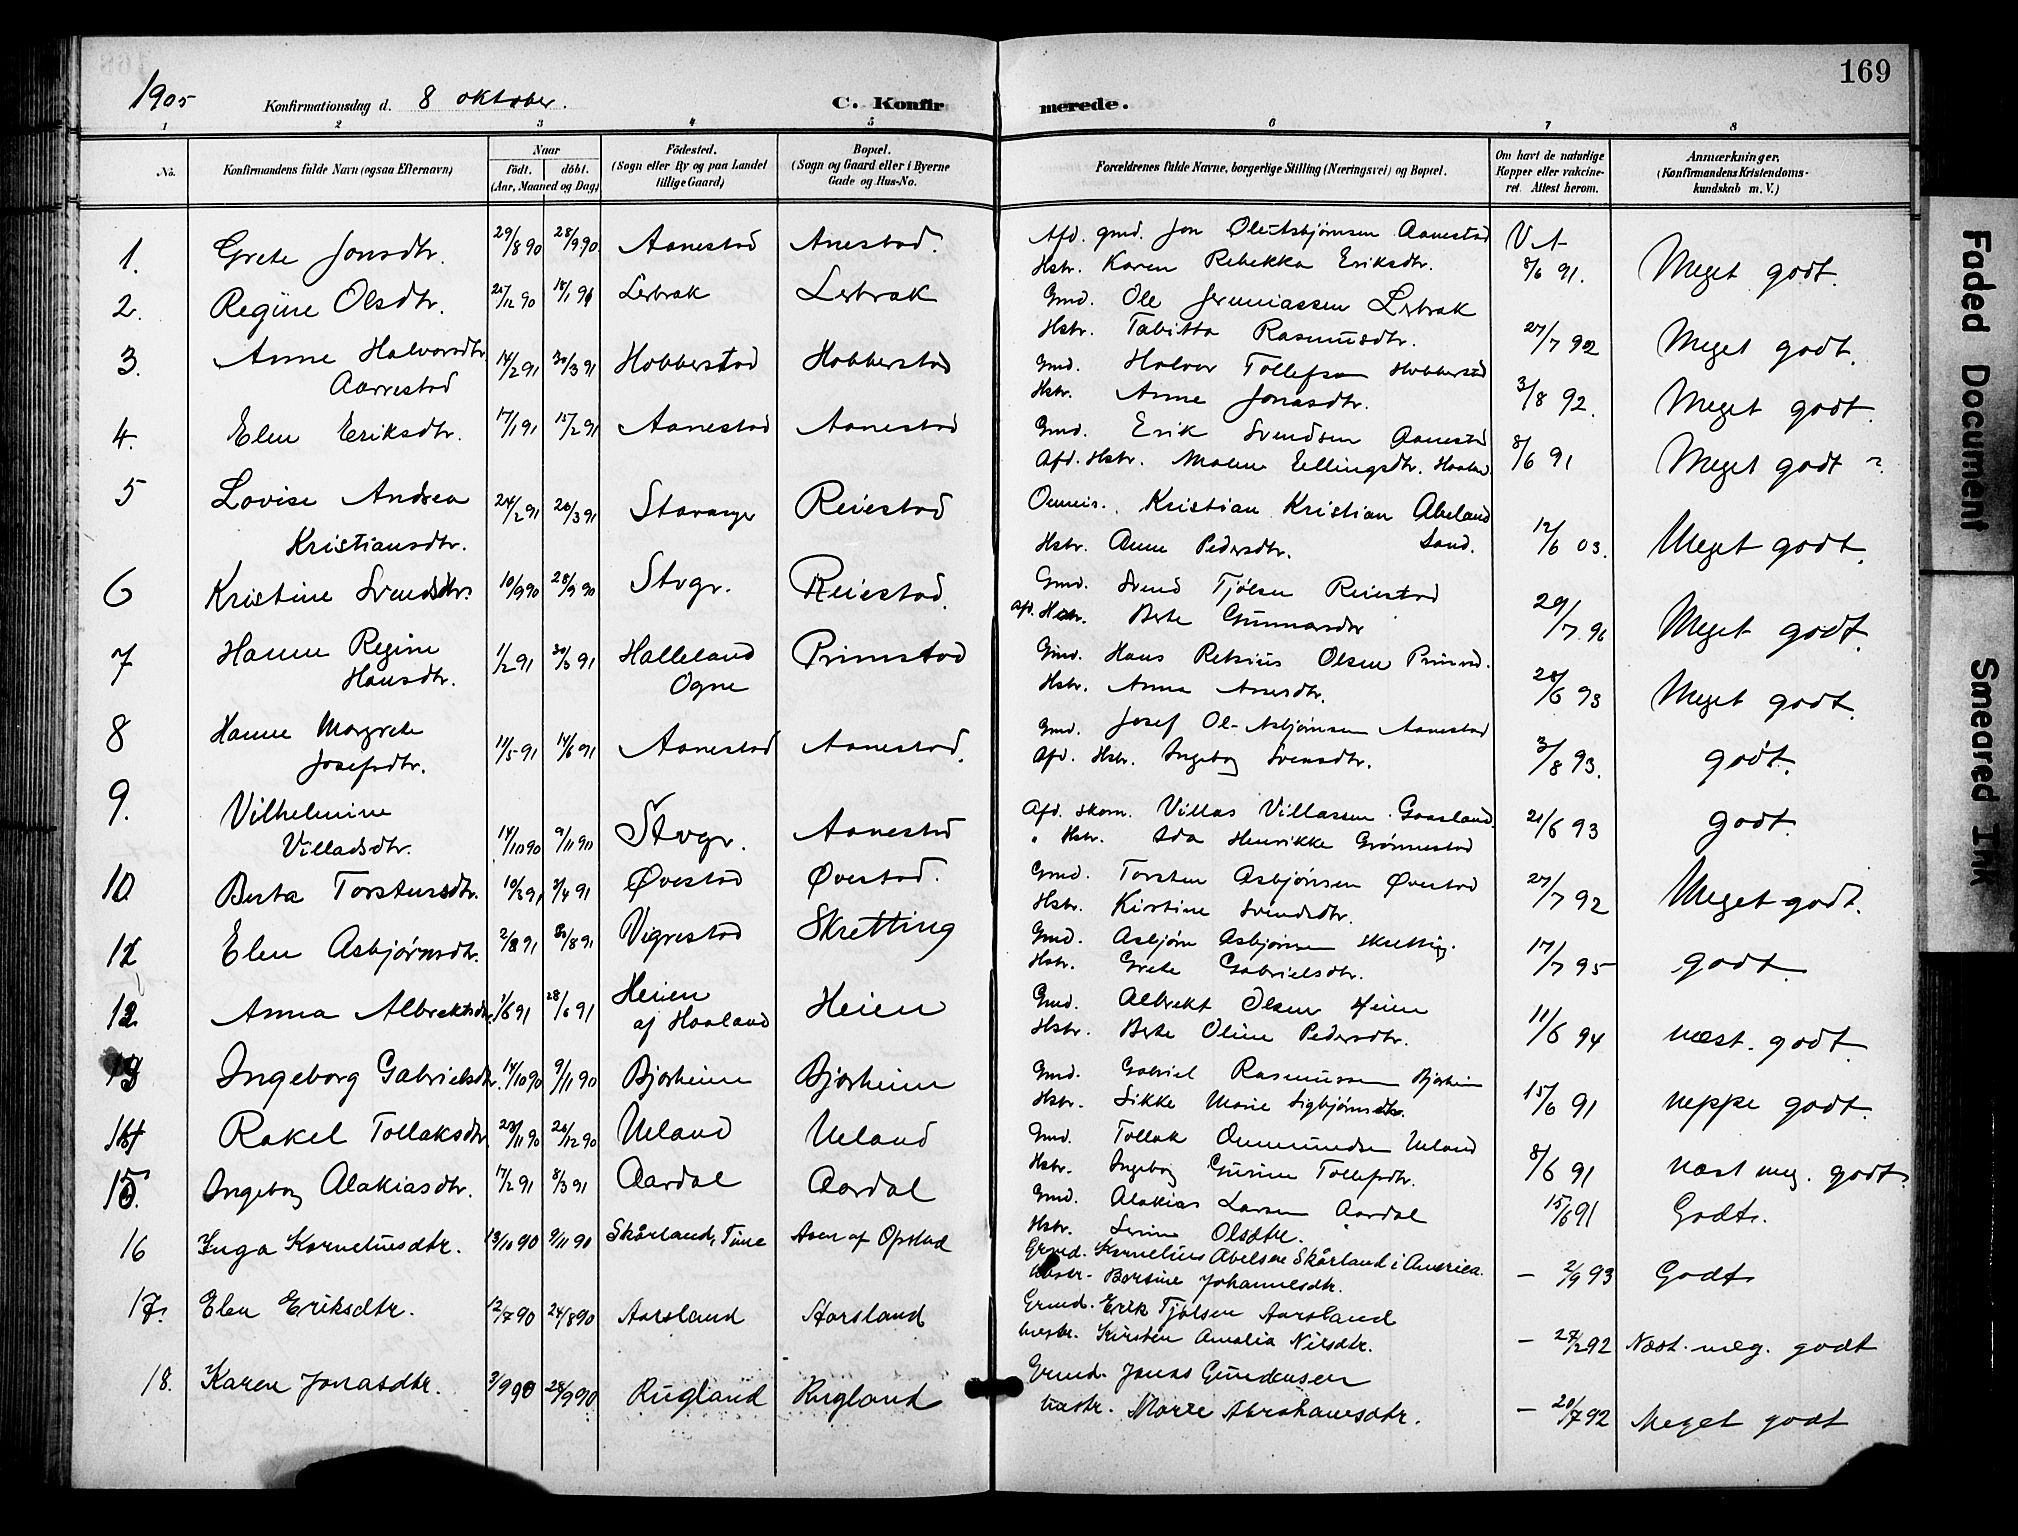 169
1905 Konfirmationsdag d. 8 oktober. C. Konfirmerede.
1 2 3 4 5 6 7 8
No. Konfirmandens fulde Navn (ogsaa Efternavn) Naar født. døbt. (Aar, Maaned og Dag) Födested. (Sogn eller By og paa Landet tillige Gaard) Bopæl. (Sogn og Gaard eller i Byerne Gade og Hus-No. Forældrenes fulde Navne, borgerlige Stilling (Næringsvei) og Bopæl. Om havt de naturlige Kopper eller vakcineret. Attest herom. Anmærkninger. (Konfirmandens Kristendomskundskab m. V.)
1. Grete Jonsdtr. 29/8 90 28/9 90 Aanestad Anestad. Afd. gmd. Jon Asbjørnsen Aanestad
Hstr. Karen Rebekka Eriksdtr. 8/6 91. Meget godt.
2. Regine Olsdtr. /12 90 18/1 91 Lerbrak Lerbrak Gmd. Ole Jeremiassen Lerbrak
Hstr. Tabitta Rasmusdtr. 27/7 92 Meget godt.
3. Anne Halvorsdtr. 14/2 91 30/3 91 Hobberstad Hobberstad Gmd. Halvor Tollefsen Hobberstad
Aarrestad Hstr. Anne Jonasdtr. 3/8 92. Meget godt.
4. Elen Eriksdtr. 17/1 91 15/2 91 Aanestad Aanestad Gmd. Erik Svendsen Aanestad
Afd. Hstr. Malene Ellingsdtr. 8/6 91 Meget godt
5 Lovise Andrea 24/2 91 26/3 91 Stavanger Reiestad Kristian Kristian Abeland
Kristiansdtr. Hstr. Anne Pedersdtr. Sand. 12/6 03. Meget godt.
6 Kristine Svendsdtr. 10/9 90 28/9 90 Stvgr. Reiestad. Gmd. Svend Tjølsen Reiestad
Afd. Hstr. Berte Gunnarsdtr 29/7 96 Meget godt.
7 Hanne Regine 1/2 91 30/3 91 Halleland Primstad Gmd. Hans Retsius Olsen
Hansdtr. Ogne Hstr. Anna 28/6 93 Meget godt.
8 Hanne Margrete 11/5 91 14/6 91 Aanestad Aanestad. Gmd. Josef Ol- Asbjørnsen Aanestad
Josefsdtr. Afd. Hstr. Ingeborg Svensdtr. 3/8 93. godt.
9. Vilhelmine 14/10 90 9/11 90 Stvgr. Aanestad Afd. skom. Villas Villassen Gaasland.
Villadsdtr. " Hstr. Ida Henrikke Grønnestad 21/6 93 godt.
10 Berta Torstensdtr. 10/3 91 3/4 91 Øvestad Øvestad. Gmd. Torsten Asbjørnsen Øvestad
Hstr. Kirstine Svendsdtr. 27/7 92 Meget godt.
11 Elen Asbjørnsdtr. 2/8 91 30/8 91 Vigrestad Skretting Gmd. Asbjørn Asbjørnsen Skretting.
Hstr. Grete Gabrielsdtr. 17/7 95 godt
12 Anna Albrektsdtr. 1/6 91 28/6 91 Heien Heien Gmd. Albrekt Olsen Heien
af Haaland Hstr. Berte Oline Pedersdtr. 11/6 94 næst. godt.
13 Ingeborg Gabrielsdtr. 14/10 90 9/11 90 Bjørheim Bjørheim Gmd. Gabriel Rasmussen Bjørheim
Hstr. Sikke Marie Sigbjørnsdtr. 15/6 91 neppe godt.
14 Rakel Tollaksdtr. 23/11 90 26/12 90 Ueland Ueland Gmd. Tollak Ommundsen Ueland
Hstr. Ingeborg Gurine Tollefsdtr. 8/6 91 næst meg. godt.
15 Ingeborg Alakiasdtr. 17/2 91 8/3 91 Aardal Aardal Gmd. Alakias Larsen Aardal
Hstr. Serine Olsdtr. 15/6 91 Godt.
16 Inga Kornelinsdtr. 13/10 90 9/11 90 Skårland, Time Aven af Opstad Grmd. Kornelius Abelsen Skårland i America.
hustr. Bertine Johannesdtr. – 2/9 93 Godt
17. Elen Eriksdtr. 12/7 90 24/8 90 Aarsland Aarsland Grmd. Erik Tjølsen Aarsland
hustr. Kirsten Amalia Nilsdtr. – 27/2 92 Næst. meg. godt
18. Karen Jonasdtr. 3/9 90 28/9 90 Rugland Rugland Grmd. Jonas Gundersen
hustr. Marie Abrahamsdtr. – 20/7 92 Meget godt
Faded Document
Smeared Ink